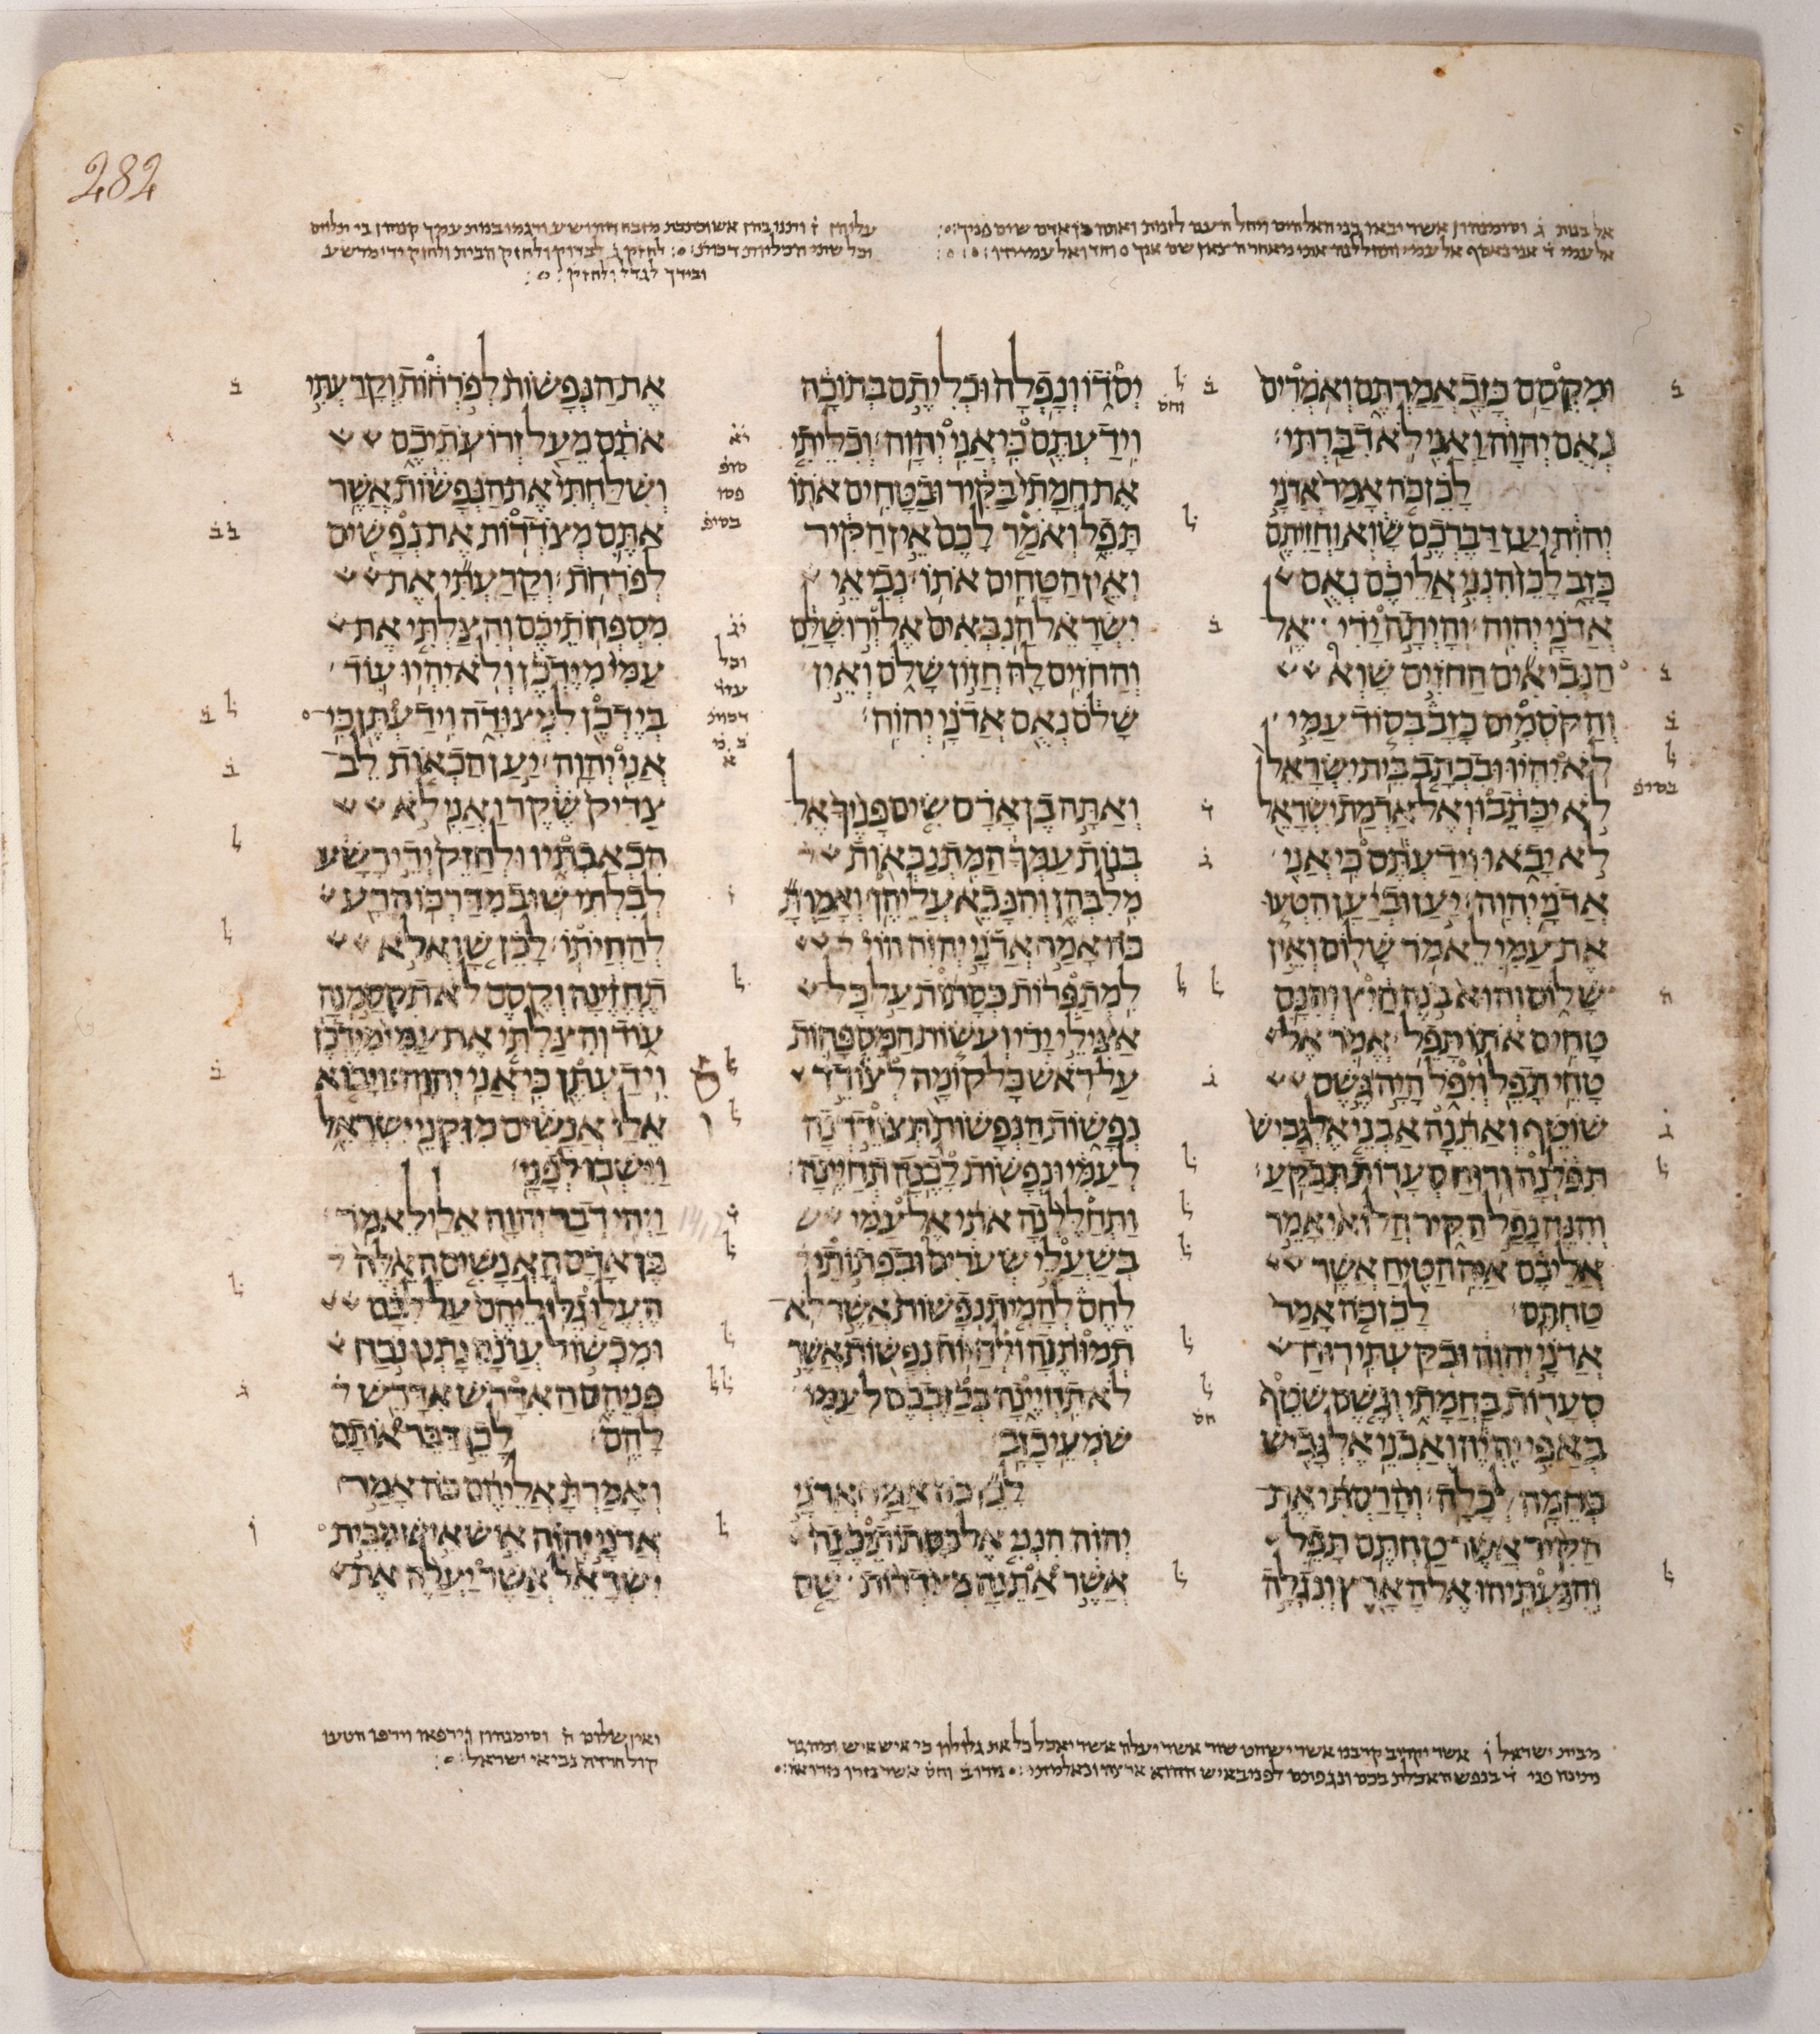 282
אל בנות ג וסימנהון אשר יבאו בני האלהים ויחל העם לזנות ואתה בן אדם שים פניך
אל עמי ד אני נאסף אל עמי ותחללנה אתי מאחר הצאן וחד ואל עמי יהיו
לחזק ג לבדוק ולחזק הבית ולחזק ידי מרשע
ובידך לגדל ולחזק
ומקסם כזב אמרתם ואמרים
נאם יהוה ואני לא דברתי
לכן כה אמר אדני
יהוה יען דברכם שוא וחזיתם
כזב לכן הנני אליכם נאם
אדני יהוה והיתה ידי אל
הנביאים החזים שוא
והקסמים כזב בסוד עמי
לא יהיו ובכתב בית ישראל
לא יכתבו ואל אדמת ישראל
לא יבאו וידעתם כי אני
אדני יהוה יען וביען הטעו
את עמי לאמר שלום ואין
שלום והוא בנה חיץ והנם
טחים אתו תפל אמר אל
טחי תפל ויפל היה גשם
שוטף ואתנה אבני אלגביש
תפלנה ורוח סערות תבקע
והנה נפל הקיר הלוא יאמר
אליכם איה הטיח אשר
טחתם לכן כה אמר
אדני יהוה ובקעתי רוח
סערות בחמתי וגשם שטף
באפי יהיה ואבני אלגביש
בחמה לכלה והרסתי את
הקיר אשר טחתם תפל
והגעתיהו אל הארץ ונגלה
יסדו ונפלה וכליתם בתוכה
וידעתם כי אני יהוה וכליתי
את חמתי בקיר ובטחים אתו
תפל ואמר לכם אין הקיר
ואין הטחים אתו נביאי
ישראל הנבאים אל ירושלם
והחזים לה חזון שלם ואין
שלם נאם אדני יהוה
ואתה בן אדם שים פניך אל
בנות עמך המתנבאות
מלבהן והנבא עליהן ואמרת
כה אמר אדני יהוה הוי
למתפרות כסתות על כל
אצילי ידי ועשות המספחות
על ראש כל קומה לצודד
נפשות הנפשות תצודדנה
לעמי ונפשות לכנה תחיינה
ותחללנה אתי אל עמי
בשעלי שערים ובפתותי
לחם להמית נפשות אשר לא
תמותנה ולחיות נפשות אשר
לא תחיינה בכזבכם לעמי
שמעי כזב
לכן כה אמר אדני
יהוה הנני אל כסתותיכנה
אשר אתנה מצדדות שם
את הנפשות לפרחות וקרעתי
אתם מעל זרועתיכם
ושלחתי את הנפשות אשר
אתם מצדדות את נפשים
לפרחת וקרעתי את
מספחתיכם והצלתי את
עמי מידכן ולא יהיו עוד
בידכן למצודה וידעתן כי
אני יהוה יען הכאות לב
צדיק שקר ואני לא
הכאבתיו ולחזק ידי רשע
לבלתי שוב מדרכו הרע
להחיתו לכן שוא לא
תחזינה וקסם לא תקסמנה
עוד והצלתי את עמי מידכן
וידעתן כי אני יהוה ויבוא
אלי אנשים מזקני ישראל
וישבו לפני
ויהי דבר יהוה אלי לאמר
בן אדם האנשים האלה
העלו גלוליהם על לבם
ומכשול עונם נתנו נכח
פניהם האדרש אדרש
להם לכן דבר אותם
ואמרת אליהם כה אמר
אדני יהוה איש איש מבית
ישראל אשר יעלה את
מבית ישראל ו אשר יקריב קרבנו אשר ישחט שור אשר יעלה אשר יאכל כל את
ואין שלום ה וסימנהון וירפאו וירפו הטעו
קול חרדה נביאי ישראל